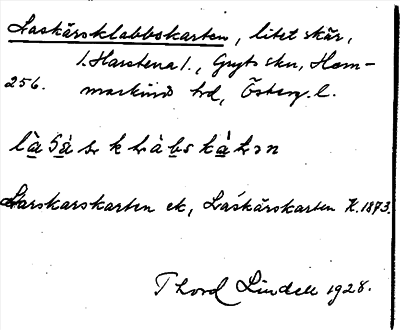 Laskärsklabbskarten, litet skär,
1. Harstena 1., Gryts skn, Ham-
256. markinds hd, Österg. l.
Larskarskarten ek, Laskärskarten K. 1873.
Thord Lindell 1928.